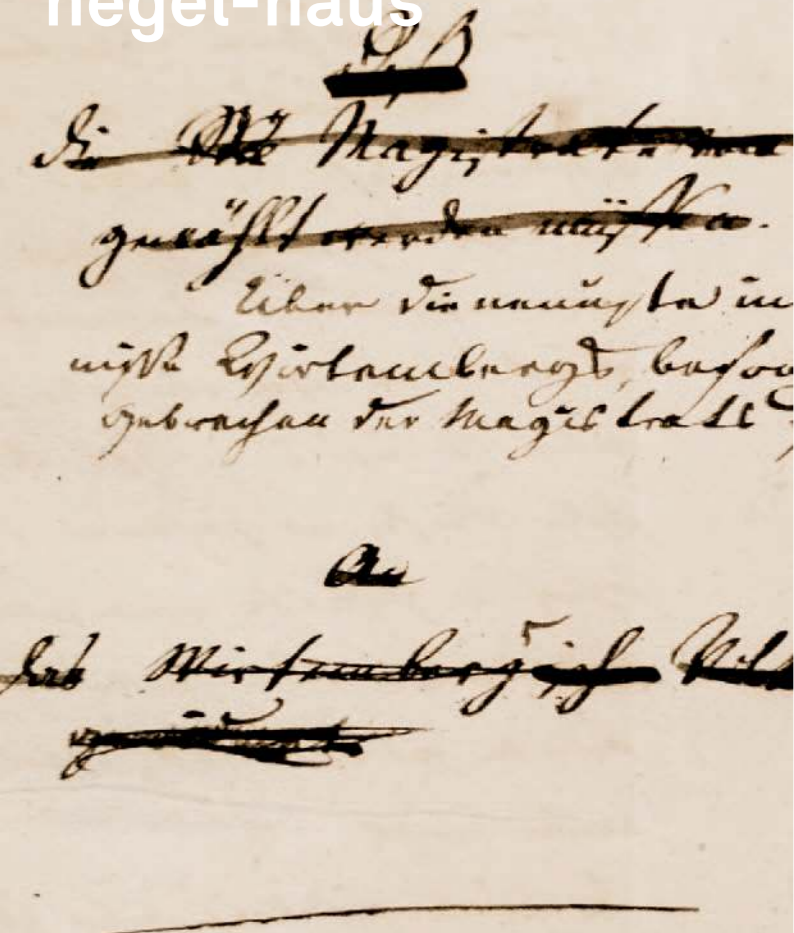 hegel-haus
Daß
die Magistrate von
gewählt werden müssen.
Über die neueste in
nisse Wirtembergs, beson
Gebrechen der Magistrats
An
das Wirtembergische Vol